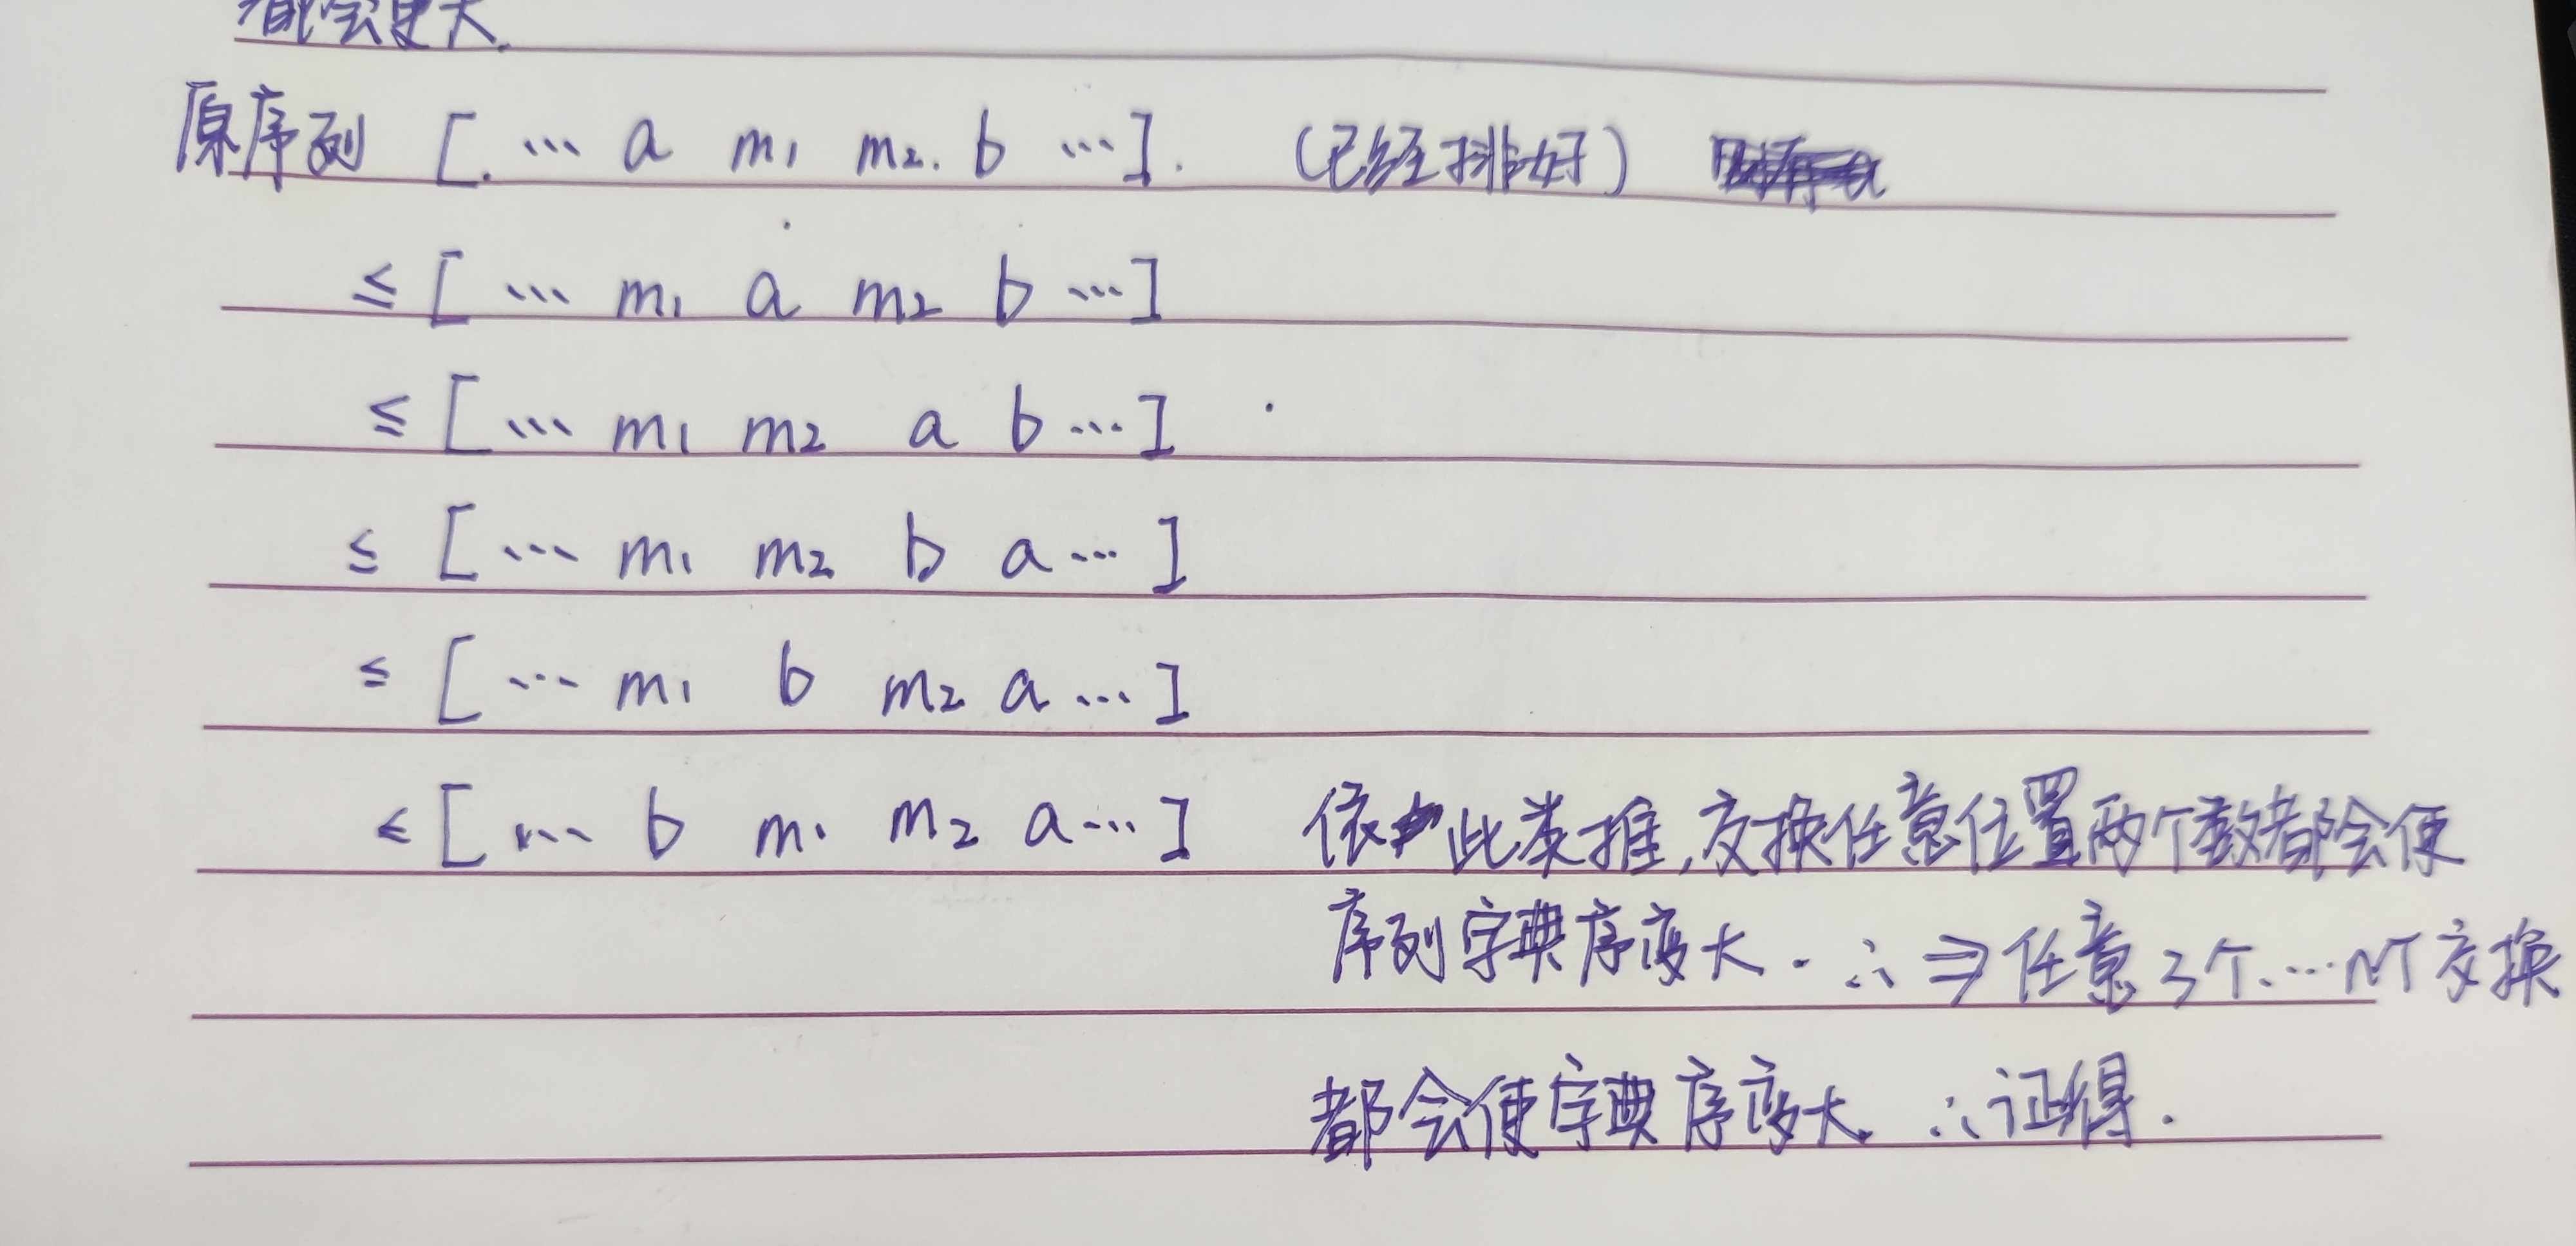 都会更大.
原序列 [ … a m₁ m₂. b … ]. (已经排好)
≤ [ … m₁ a m₂ b … ]
≤ [ … m₁ m₂ a b … ]
≤ [ … m₁ m₂ b a … ]
≤ [ … m₁ b m₂ a … ]
≤ [ … b m₁ m₂ a … ] 依此类推,交换任意位置两个数都会使
序列字典序变大. ∴ ⇒ 任意3个…N个交换
都会使字典序变大. ∴证得.